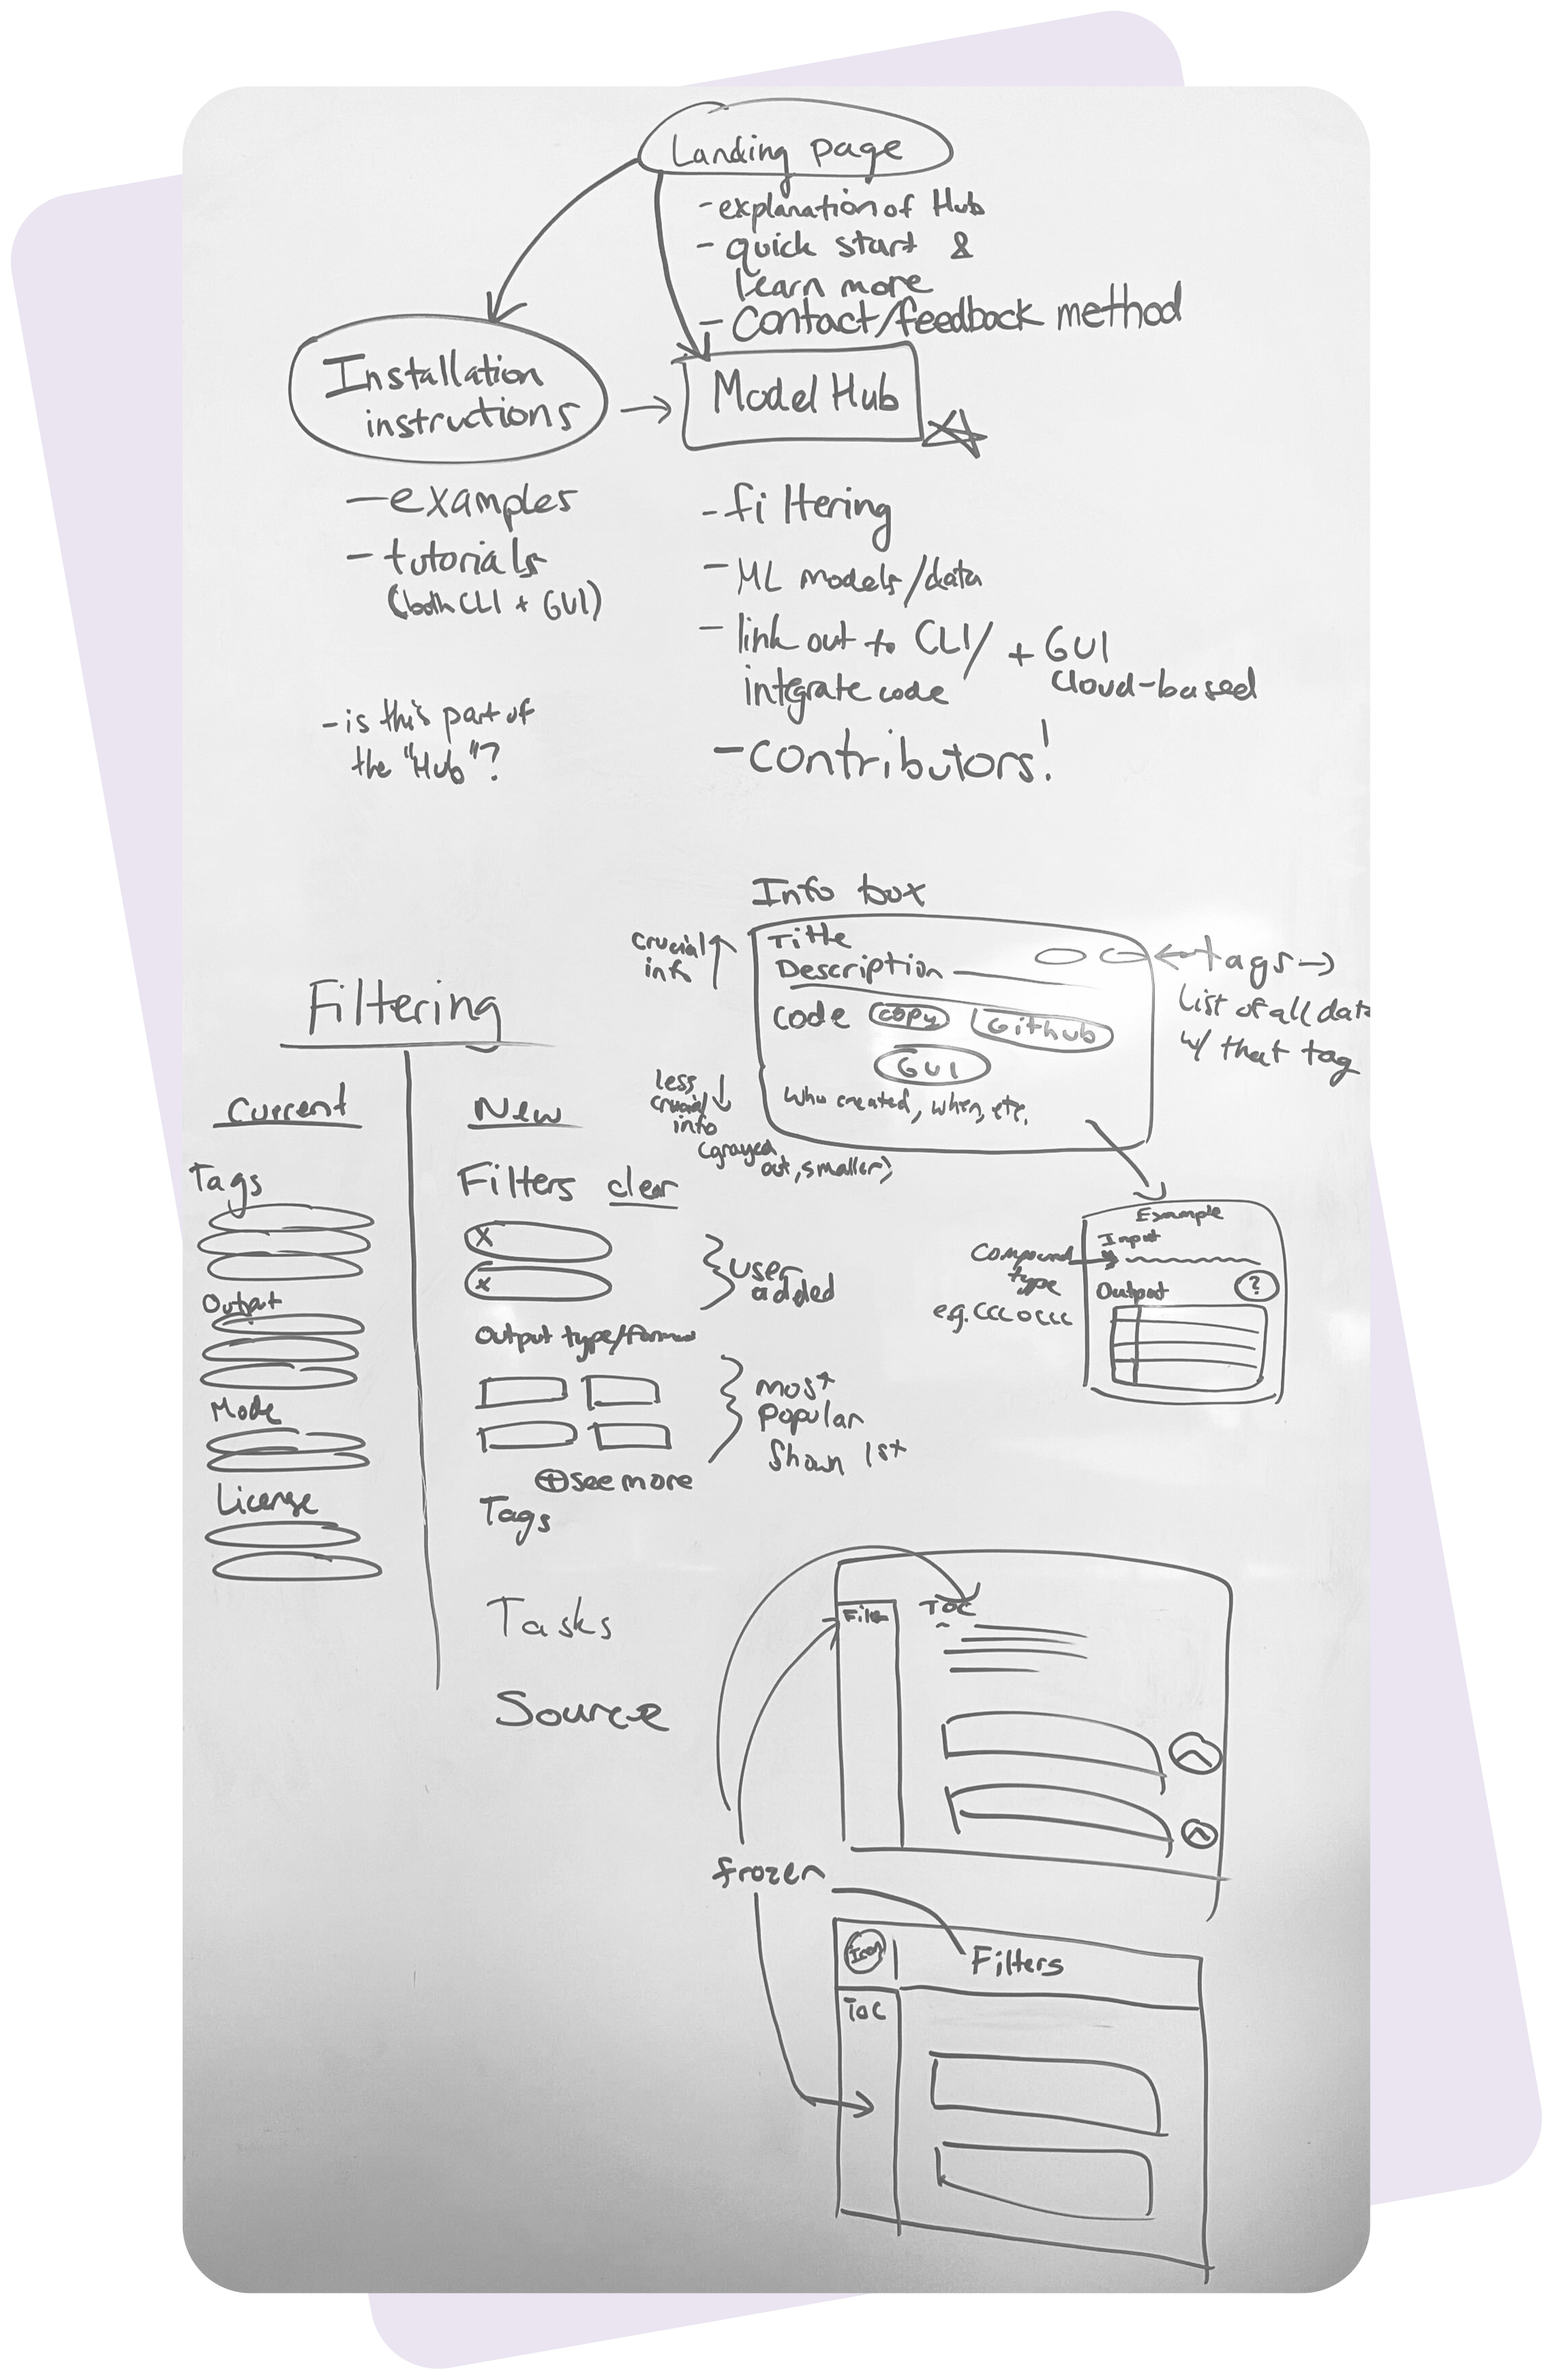 Landing page
- explanation of Hub
- quick start &
learn more
- contact/feedback method
Installation
instructions
Model Hub
- examples
- tutorials
(both CLI + GUI)
- is this part of
the "Hub"?
- filtering
- ML models/data
- link out to CLI/ + GUI
integrate code
cloud-based
- contributors!
Info box
crucial
info
Title
Description
tags
List of all data
w/ that tag
code copy Github
GUI
less
crucial
info
(grayed
out, smaller)
who created, when, etc.
Example
Input
Compound
type
e.g. CCCOCCC
Output ?
Filtering
Current
Tags
Output
Mode
License
New
Filters clear
x
x
user
added
Output type/format
most
popular
shown 1st
+ see more
Tags
Tasks
Source
Filter
TOC
frozen
Icon
Filters
TOC